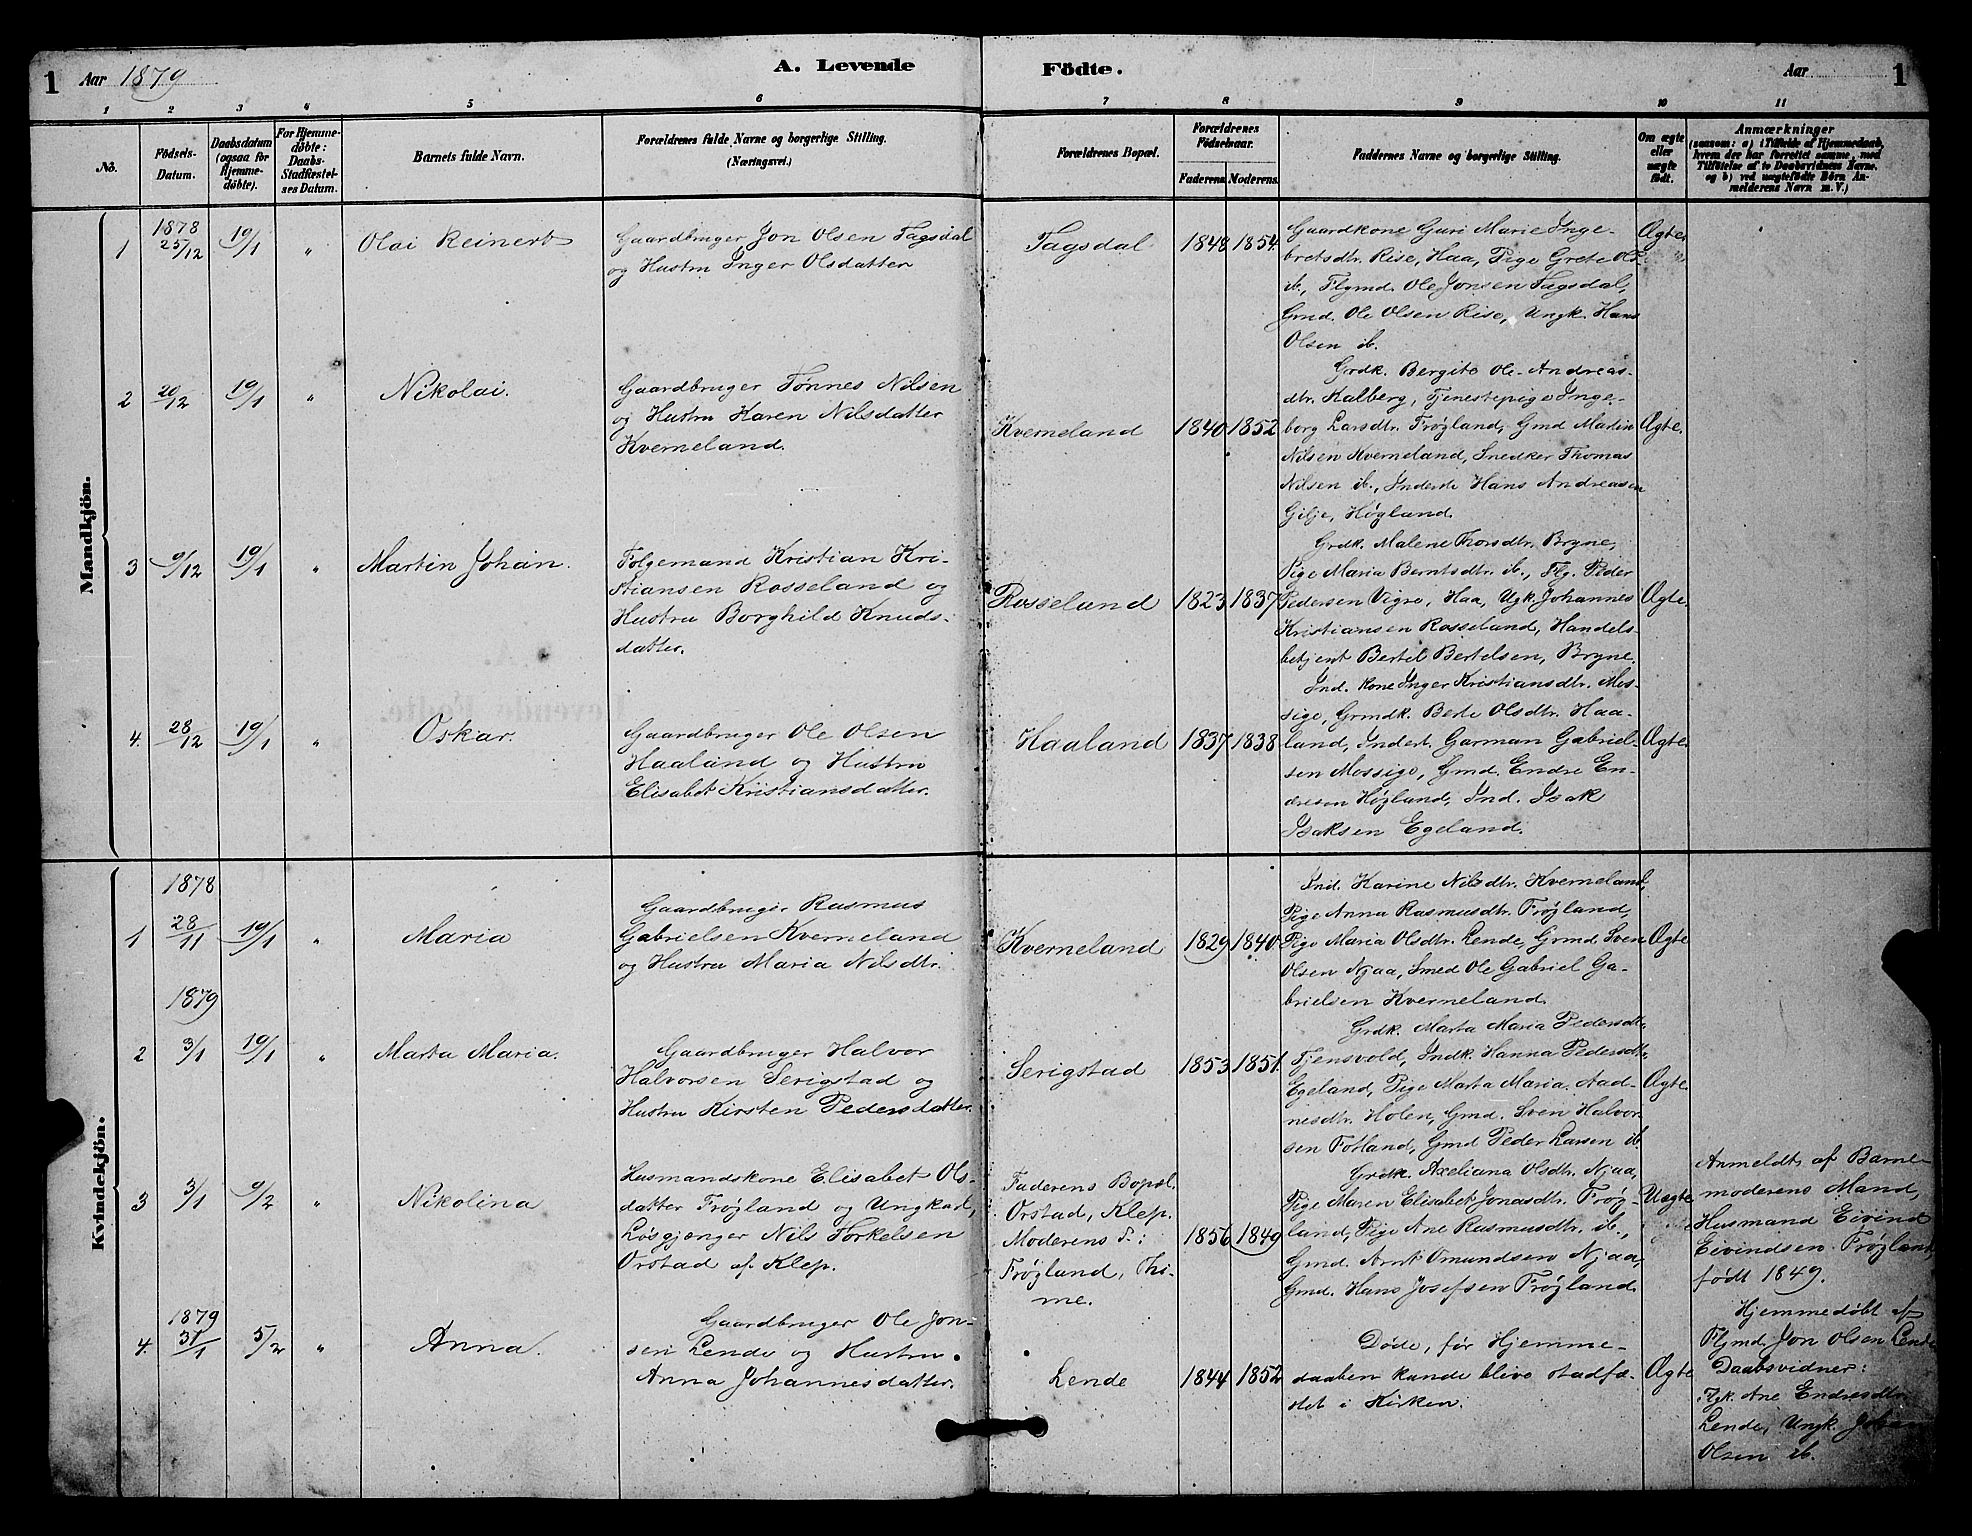 1 Aar 1879 A. Levende Födte. Aar 1
1 2 3 4 5 6 7 8 9 10 11
No.
Fødsels-
Datum.
Daabsdatum
(ogsaa for
Hjemme-
døbte).
For Hjemme-
døbte:
Daabs-
Stadfæstel-
ses Datum.
Barnets fulde Navn.
Forældrenes fulde Navne og borgerlige Stilling.
(Næringsvei.)
Forældrenes Bopæl.
Forældrenes
Fødselsaar.
Faderens. Moderens.
Faddernes Navne og borgerlige Stilling.
Om ægte
eller
uægte
født.
Anmærkninger
(saasom: a) i Tilfælde af Hjemmedaab,
hvem der har forrettet samme, med
Tilføielse af to Daabsvidners Navne.
og b) ved uægtefødte Børn An-
melderens Navn m. V.)
Mandkjön.
1
1878
25/12
19/1
"
Olai Reinert
Gaardbruger Jon Olsen Tagsdal
og Hustru Inger Olsdatter
Tagsdal
1848 1854
Gaardkone Guri Marie Inge-
bretsdtr. Rise, Haa, Pige Grete Ols
ib., Flgmd. Ole Jonsen Tagsdal,
Gmd. Ole Olsen Rise, Ungk. Hans
Olsen ib.
Ægte
2
20/12
19/1
"
Nikolai.
Gaardbruger Tønnes Nilsen
og Hustru Karen Nilsdatter
Kverneland.
Kverneland
1840 1852
Grdk. Bergite Ole-Andreas-
dtr. Kalberg, Tjenestepige Inge-
borg Larsdtr. Frøgland, Gmd Martin
Nilsen Kverneland, Snedker Thomas
Nilsen ib., Inderste Hans Andreasen
Gilje, Høgland.
Ægte.
3
9/12
19/1
"
Martin Johan.
Følgemand Kristian Kri-
stiansen Rosseland og
Hustru Borghild Knuds-
datter.
Rosseland
1823 1837
Grdk. Malene Thorsdtr. Bryne,
Pige Maria Berntsdtr. ib., Flg. Peder
Pedersen Vigre, Haa, Ugk. Johannes
Kristiansen Rosseland, Handels-
betjent Bertel Bertelsen, Bryne.
Ægte.
4.
28/12
19/1
"
Oskar.
Gaardbruger Ole Olsen
Haaland og Hustru
Elisabet Kristiansdatter.
Haaland
1837 1838
Ind. kone Inger Kristiansdtr. Mos-
sige, Grmdk. Berte Olsdtr. Haa-
land, Inderst. Garman Gabriel-
sen Mossige, Gmd. Endre En-
dresen Høgland, Ind. Isak
Isaksen Egeland.
Ægte
Kvindekjön.
1
1878
28/11
19/1
"
Maria
Gaardbruger Rasmus
Gabrielsen Kverneland
og Hustru Maria Nilsdtr.
Kverneland
1829 1840
Ind. Karine Nilsdtr. Kverneland,
Pige Anna Rasmusdtr. Frøgland,
Pige Maria Olsdtr. Lende, Grmd. Sven
Olsen Njaa, Smed Ole Gabriel Ga-
brielsen Kverneland.
Ægte
2
1879
3/1
19/1
"
Marta Maria.
Gaardbruger Halvor
Halvorsen Serigstad og
Hustru Kirsten Pedersdatter.
Serigstad
1853 1851
Grdk. Marta Maria Pedersdtr.
Tjensvold, Indk. Hanna Pedersdtr.
Egeland, Pige Marta Maria Aad-
nesdtr. Holen, Gmd. Sven Halvor-
sen Fotland, Gmd Peder Larsen ib.
Ægte
3
3/1
9/2
"
Nikolina
Husmandskone Elisabet Ols-
datter Frøgland og Ungkarl,
Løsgjænger Nils Torkelsen
Orstad af Klep.
Faderens Bopæl.
Orstad, Klep.
Moderens B.:
Frøgland, Thi-
me.
1856 1849
Grdk. Axeliana Olsdtr. Njaa,
Pige Maren Elisabet Jonasdtr. Frøg-
land, Pige Ane Rasmusdtr. ib.,
Gmd. Arnt Omundsen Njaa,
Gmd. Hans Josefsen Frøgland.
Uægte
Anmeldt af Barne-
moderens Mand,
Husmand Eivind
Eivindsen Frøgland
født 1849.
4.
1879
31/1
5/2
"
Anna.
Gaardbruger Ole Jon-
sen Lende og Hustru
Anna Johannesdatter.
Lende
1844 1852
Døde, før Hjemme-
daaben kunde blive stadfæ-
stet i Kirken.
Ægte
Hjemmedøbt af
Flgmd. Jon Olsen Lende
Daabsvidner:
Flgk. Ane Endresdtr.
Lende, Ungk.
Olsen ib.